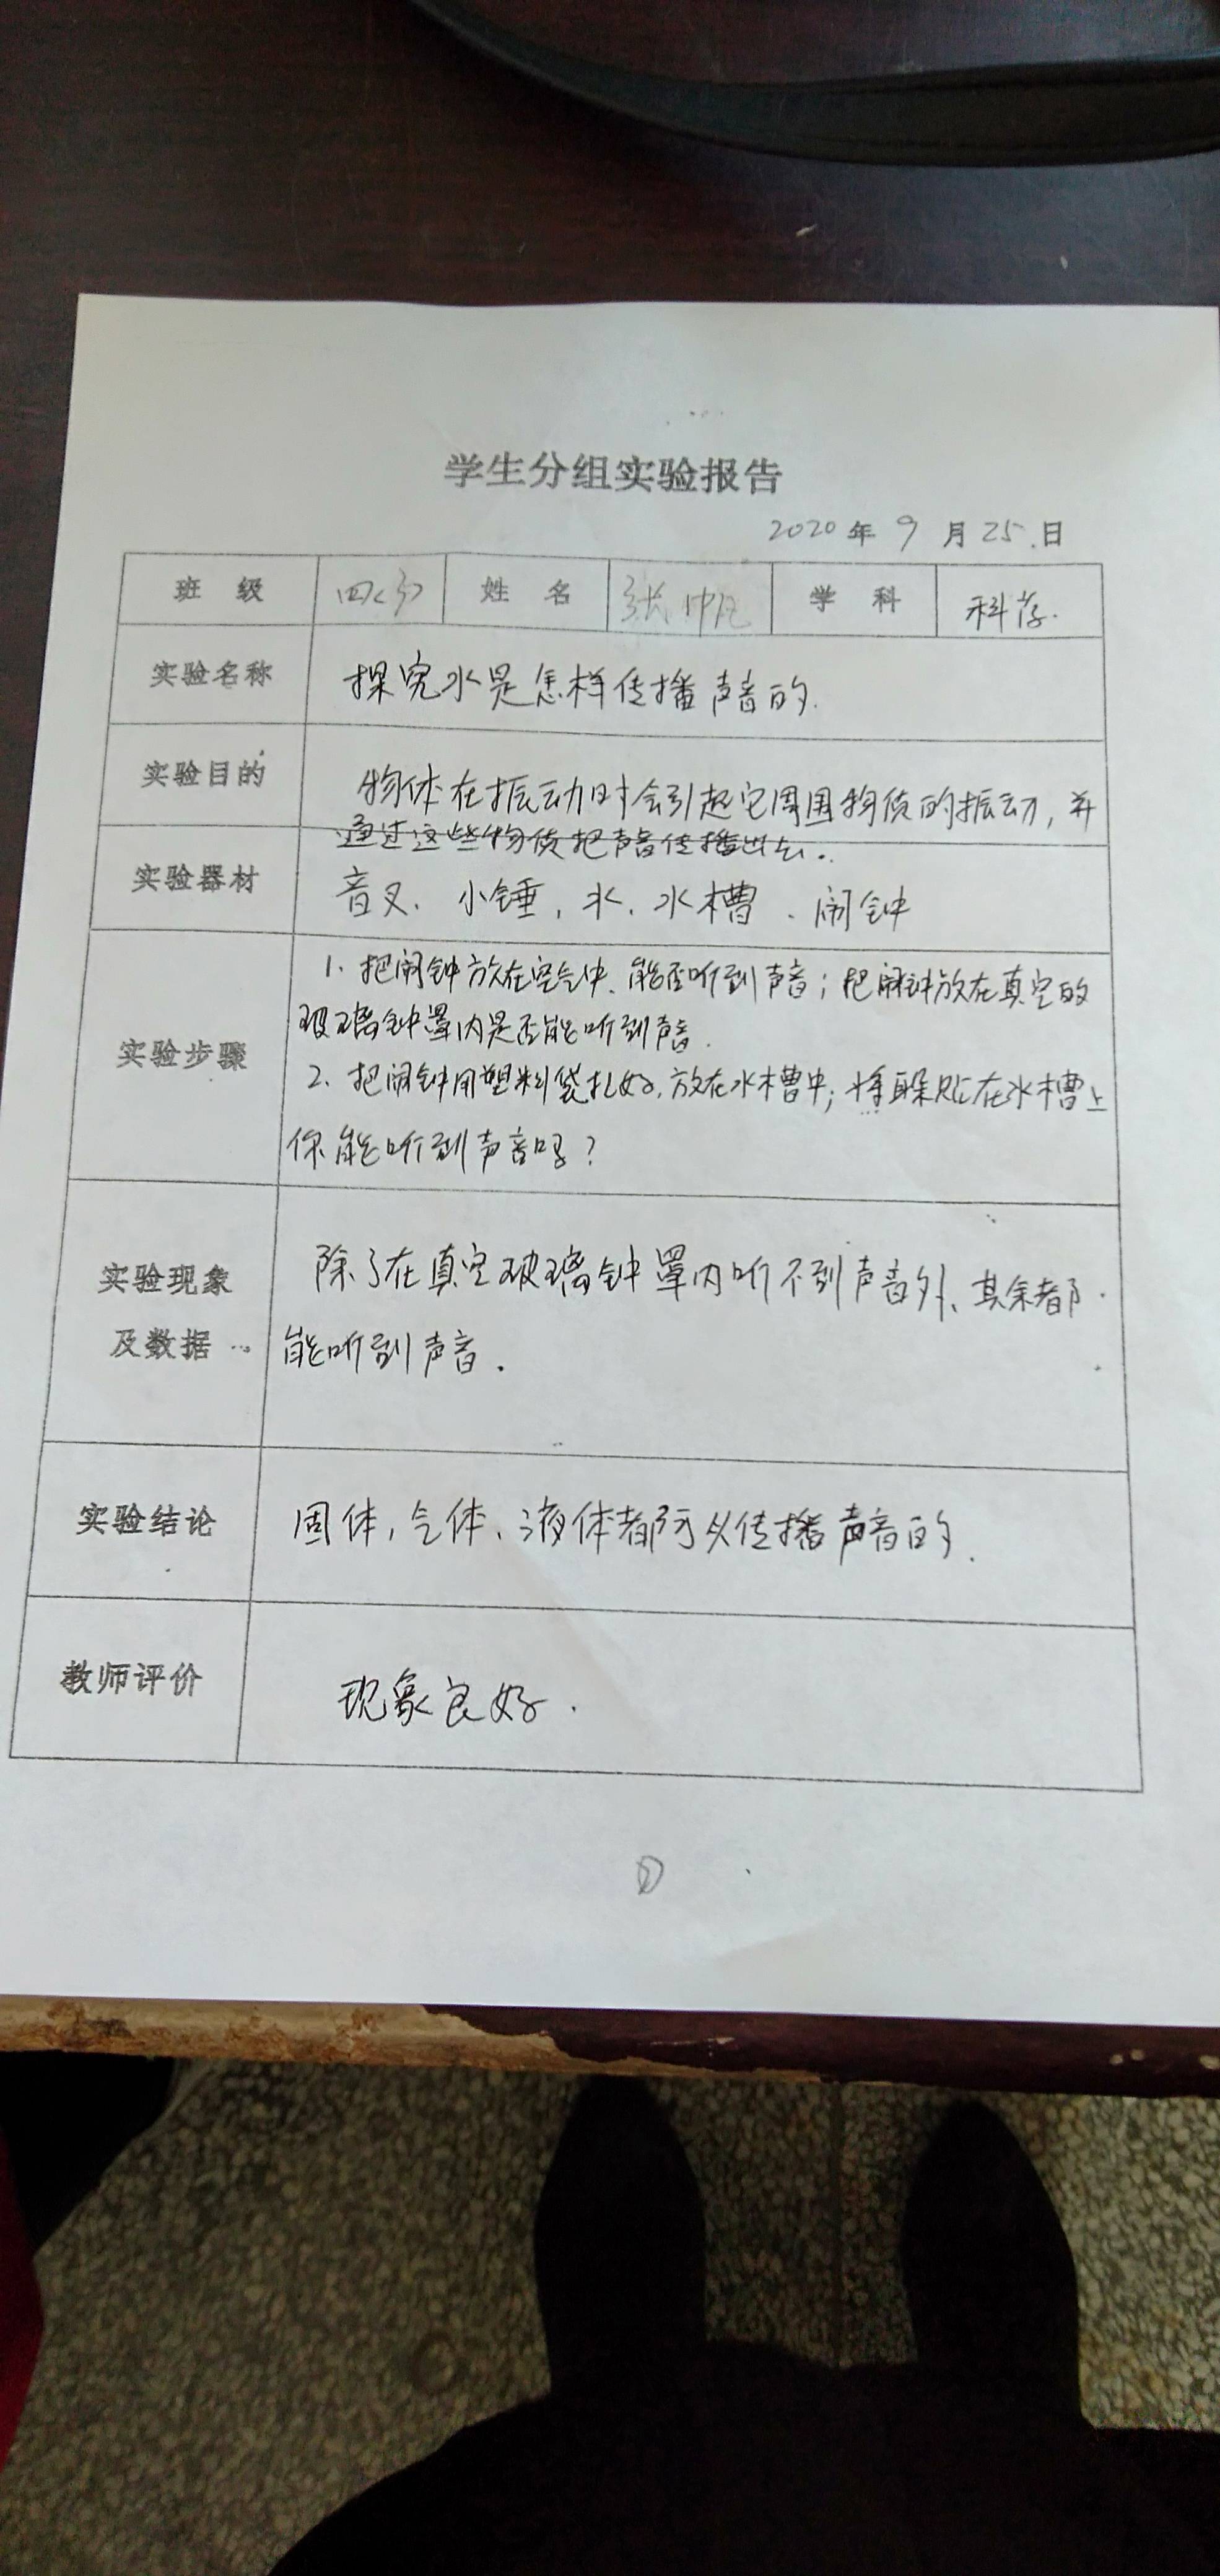 学生分组实验报告
2020年9月25.日
班 级 姓 名 张 学 科 科学.
实验名称 探究水是怎样传播声音的.
实验目的 物体在振动时会引起它周围物质的振动,并
通过这些物质把声音传播出去.
实验器材 音叉、小锤,水、水槽、闹钟
1、把闹钟放在空气中、能否听到声音;把闹钟放在真空的
玻璃钟罩内是否能听到声音.
实验步骤
2、把闹钟用塑料袋扎好,放在水槽中;将耳朵贴在水槽上
你能听到声音吗?
实验现象 除了在真空玻璃钟罩内听不到声音外、其余都
及数据 能听到声音.
实验结论 固体,气体、液体都可以传播声音的.
教师评价 现象良好.